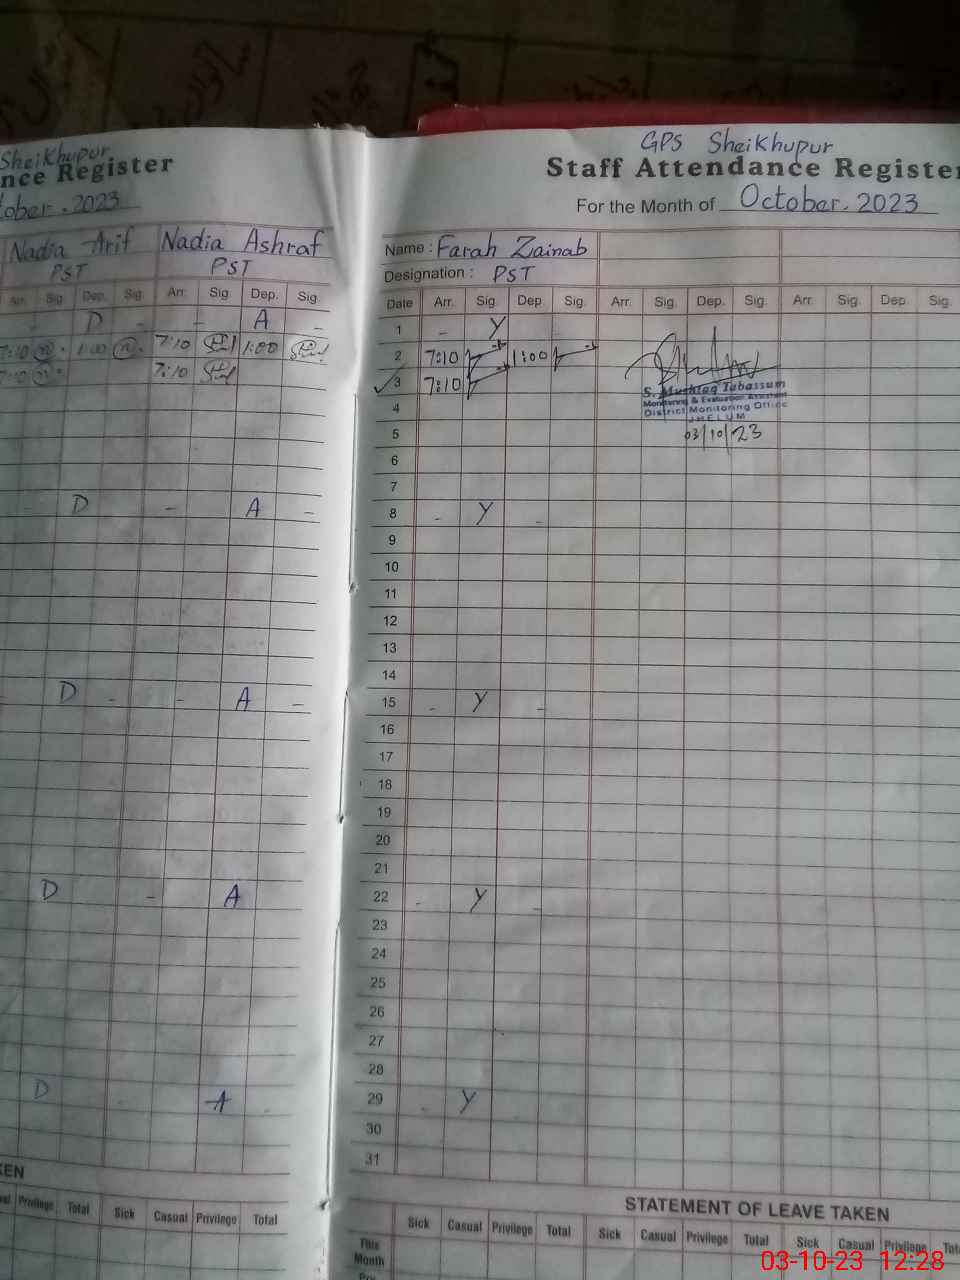 Sheikhupur
nce Register
tober. 2023
Nadia Arif Nadia Ashraf
PST PST
Arr. Sig. Dep. Sig. Arr. Sig. Dep. Sig.
- D - - A -
7:10 1:00 7:10 1:00
7:10 7:10
- D - A -
- D - - A -
D - A
D - A -
KEN
Privilege Total Sick Casual Privilege Total
GPS Sheikhupur
Staff Attendance Register
For the Month of October. 2023
Name : Farah Zainab
Designation : PST
Date Arr. Sig. Dep. Sig. Arr. Sig. Dep. Sig. Arr. Sig. Dep. Sig.
1 - Y
2 7:10 1:00
3 7:10
S. Mushtaq Tabassum
Monitoring & Evaluation Assistant
District Monitoring Office
JHELUM
03/10/23
4
5
6
7
8 - Y -
9
10
11
12
13
14
15 - Y -
16
17
18
19
20
21
22 - Y -
23
24
25
26
27
28
29 - Y
30
31
STATEMENT OF LEAVE TAKEN
Sick Casual Privilege Total Sick Casual Privilege Total Sick Casual Privilege
This
Month
03-10-23 12:28